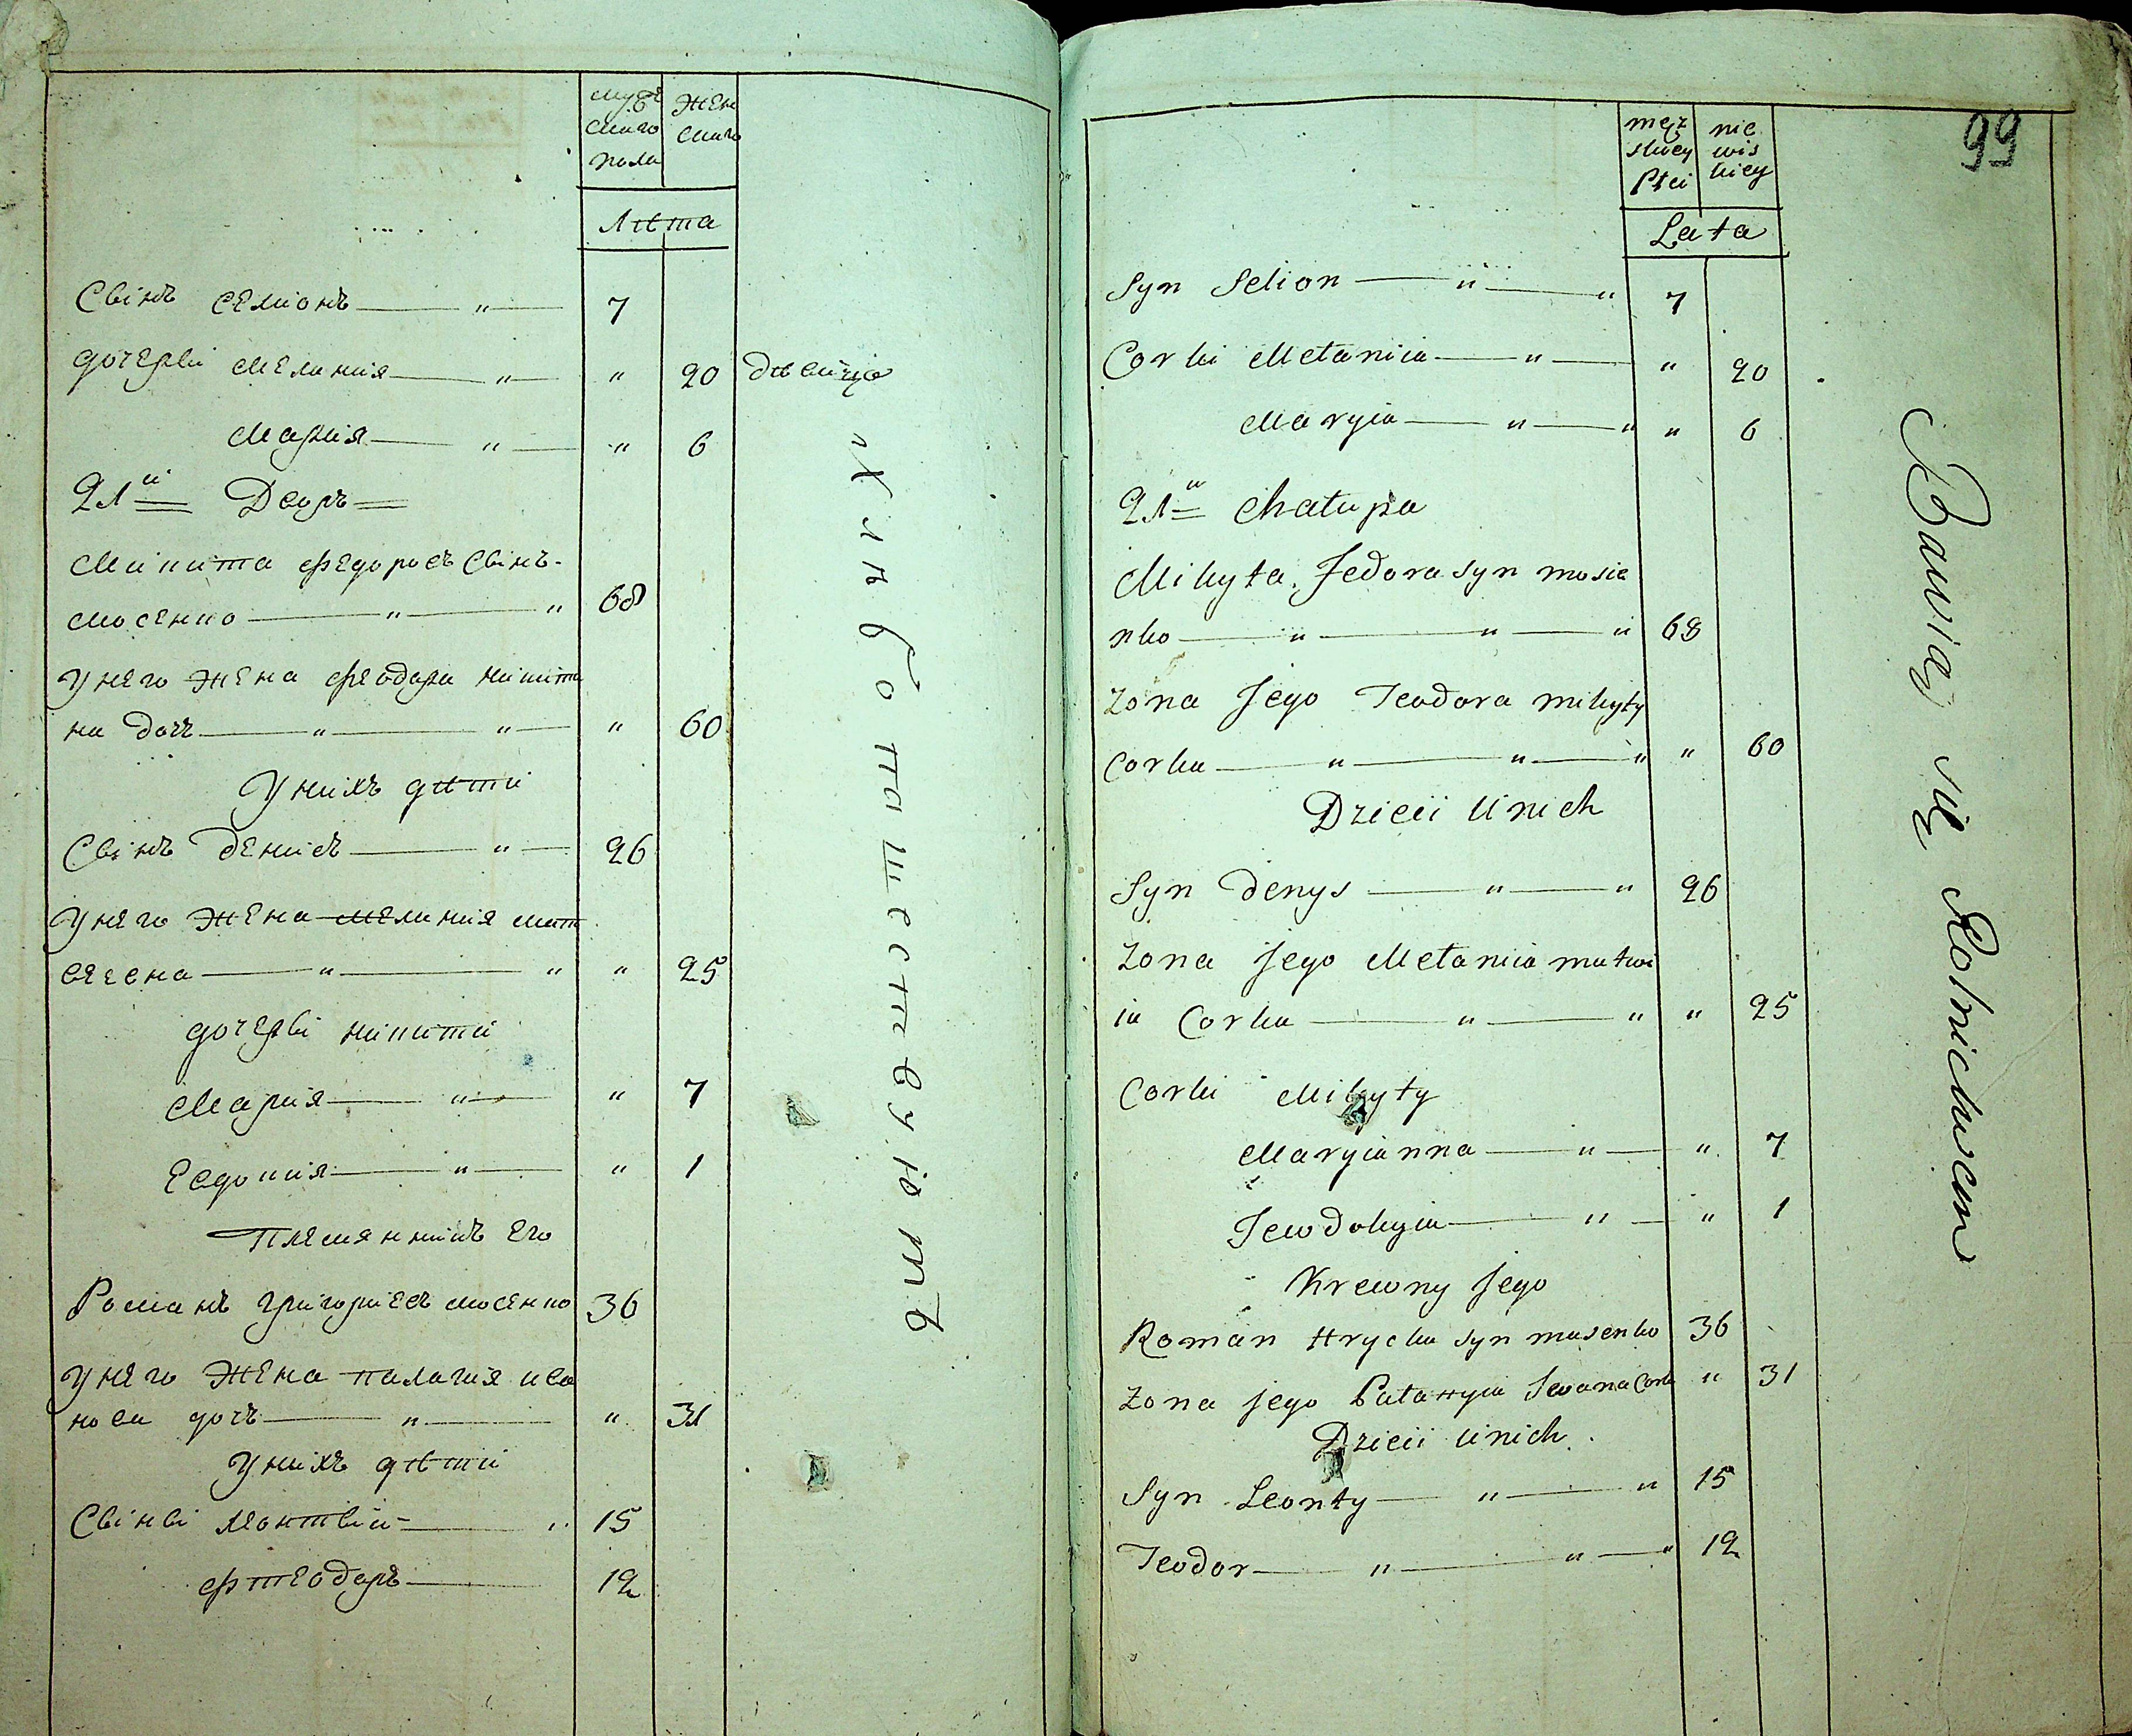 мужескаго пола
женскаго
Лѣта
Свінъ Семіонъ — " — 7
дочерві Мелания — " — " 20 дѣвица
Мария — " — " 6
21й Дворъ
Микита Федоровъ Свінъ
Мосенко — " — " 68
У него жена Феодора Никити
на дочь — " — " — " 60
У нихъ дѣти
Свінъ Денисъ — " — 26
У него жена Мелания Мат
веевна — " — " " 25
дочерві Микити
Мария — " — " 7
Евдокия — " — " 1
Племянникъ его
Романъ Григориевъ Мосенко 36
У него жена Палагия Ива
нова дочь — " — " 31
У нихъ дѣти
Свінві Леонтвій — " 15
Фтеодоръ — 12
Хлѣбопашествуютъ
99
męz skiey Płci
nie wis kiey
Lata
Syn Selion — " — " 7
Corki Melaniia — " — " 20
Maryia — " — " " 6
21й Chatupa
Mikyta Fedora syn mosie
nko — " — " — " 68
Zona Jego Teodora mikyty
Corka — " — " — " " 60
Dzieci u nich
Syn Denys — " — " 26
Zona Jego Melaniia matwi
ia Corka — " — " " 25
Corki Mikyty
Maryianna — " — " 7
Jewdokyia — " — " 1
Krewny Jego
Roman Hrycka syn musenko 36
Zona Jego Palahyia Iwana Corka " 31
Dzieci u nich
Syn Leonty — " — " 15
Teodor — " — " — " 12
Bawią się Rolnictwem